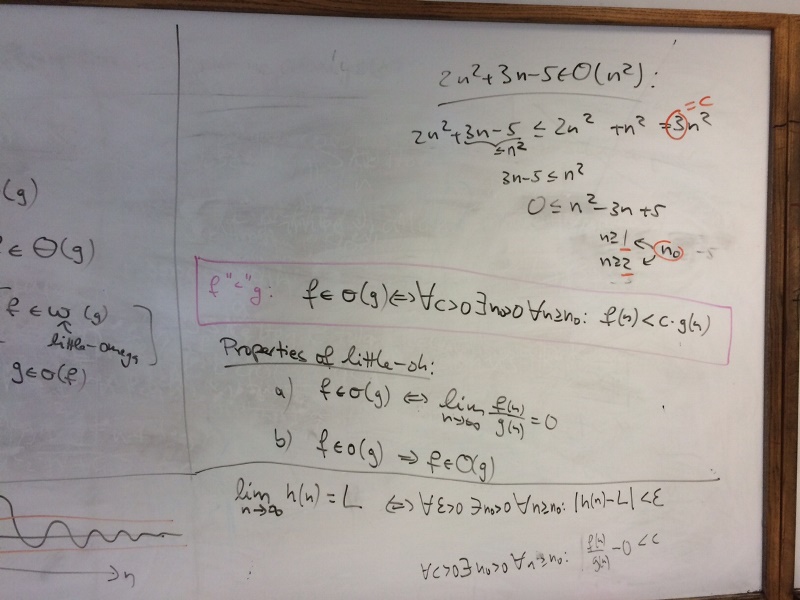 (g)
∈ Θ(g)
f ∈ ω (g)
little-omega
g∈o(f)
→n
2n²+3n-5∈O(n²):
=c
2n²+3n-5 ≤ 2n² +n² =3n²
≤n²
3n-5 ≤ n²
0 ≤ n²-3n+5
n≥1 n₀
n≥2
f "<" g: f∈o(g)⇔∀c>0 ∃n₀>0 ∀n≥n₀: f(n)<c·g(n)
Properties of little-oh:
a) f∈o(g) ⇔ lim n→∞ f(n)/g(n) = 0
b) f∈o(g) ⇒ f∈O(g)
lim n→∞ h(n) = L ⇔ ∀ε>0 ∃n₀>0 ∀n≥n₀: |h(n)-L|<ε
∀c>0 ∃n₀>0 ∀n≥n₀: |f(n)/g(n) -0 <c